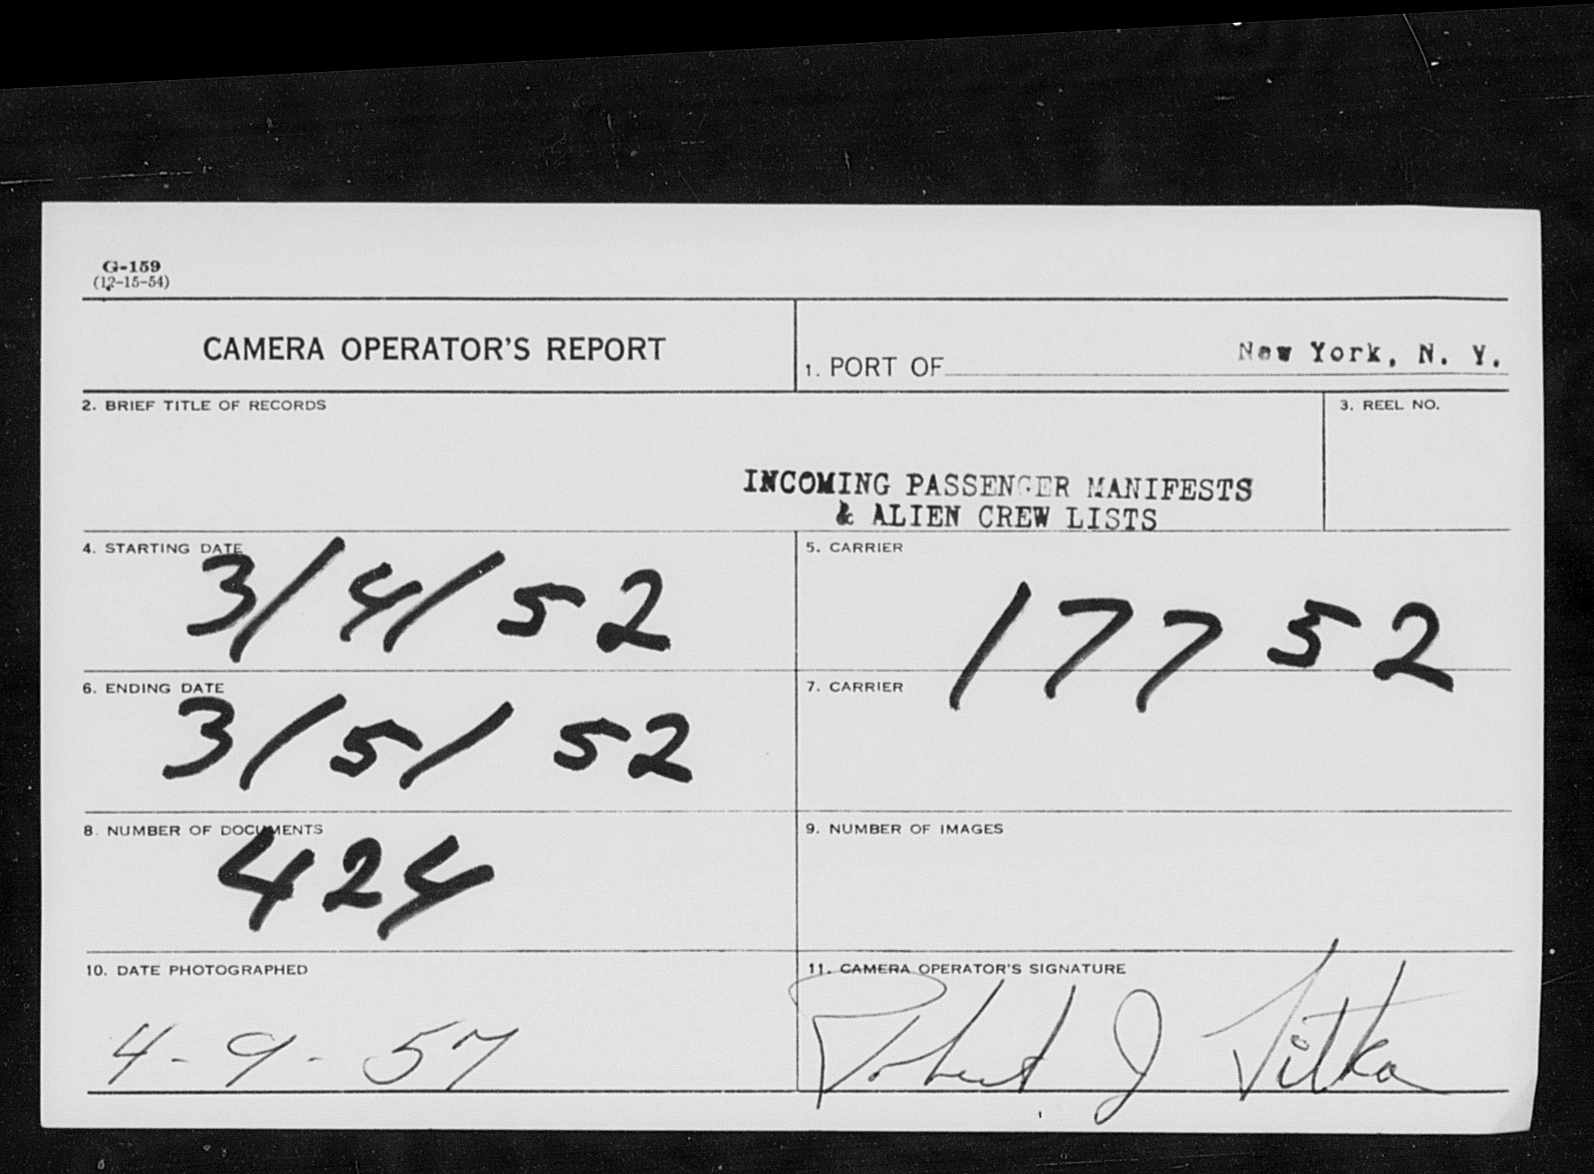 G-159
(12-15-54)
CAMERA OPERATOR'S REPORT
1. PORT OF New York, N. Y.
2. BRIEF TITLE OF RECORDS
3. REEL NO.
INCOMING PASSENGER MANIFESTS
& ALIEN CREW LISTS
4. STARTING DATE
3/4/52
5. CARRIER
17752
6. ENDING DATE
3/5/52
7. CARRIER
8. NUMBER OF DOCUMENTS
424
9. NUMBER OF IMAGES
10. DATE PHOTOGRAPHED
4-9-57
11. CAMERA OPERATOR'S SIGNATURE
Robert J